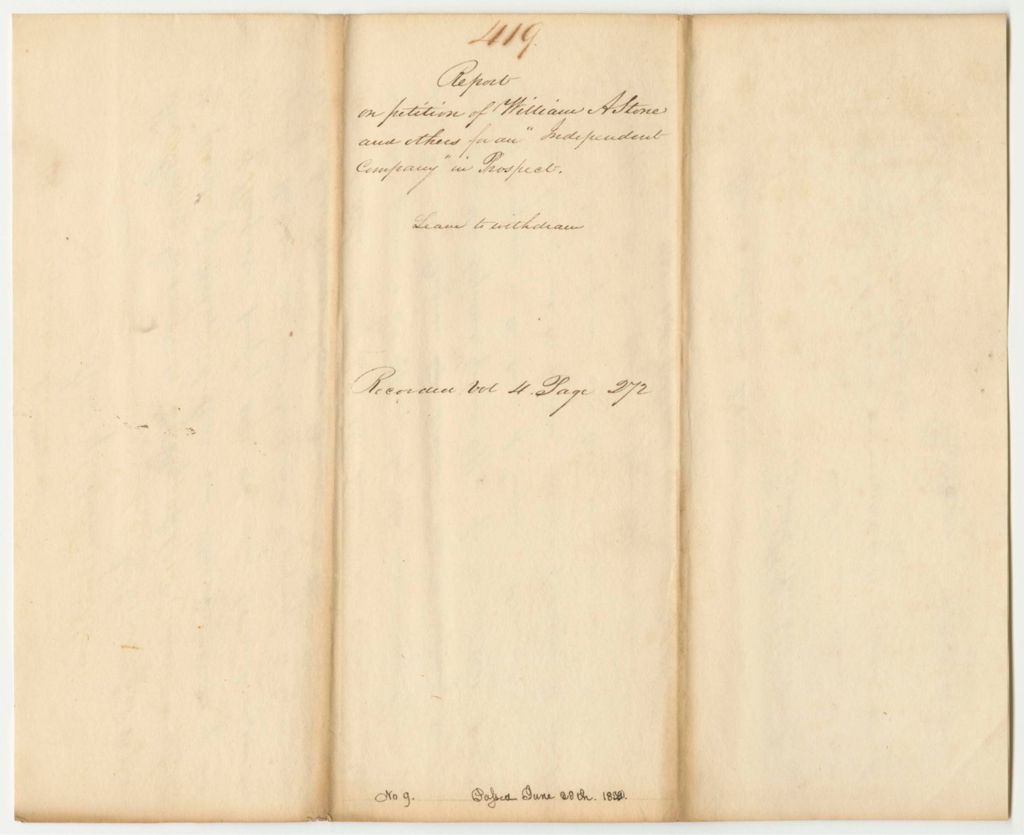 419.
Report
on petition of William A Stone
and others for an "Independent
Company" in Prospect.
Leave to withdraw
Recorded Vol 4. Page 272
No 9. Passed June 28th.